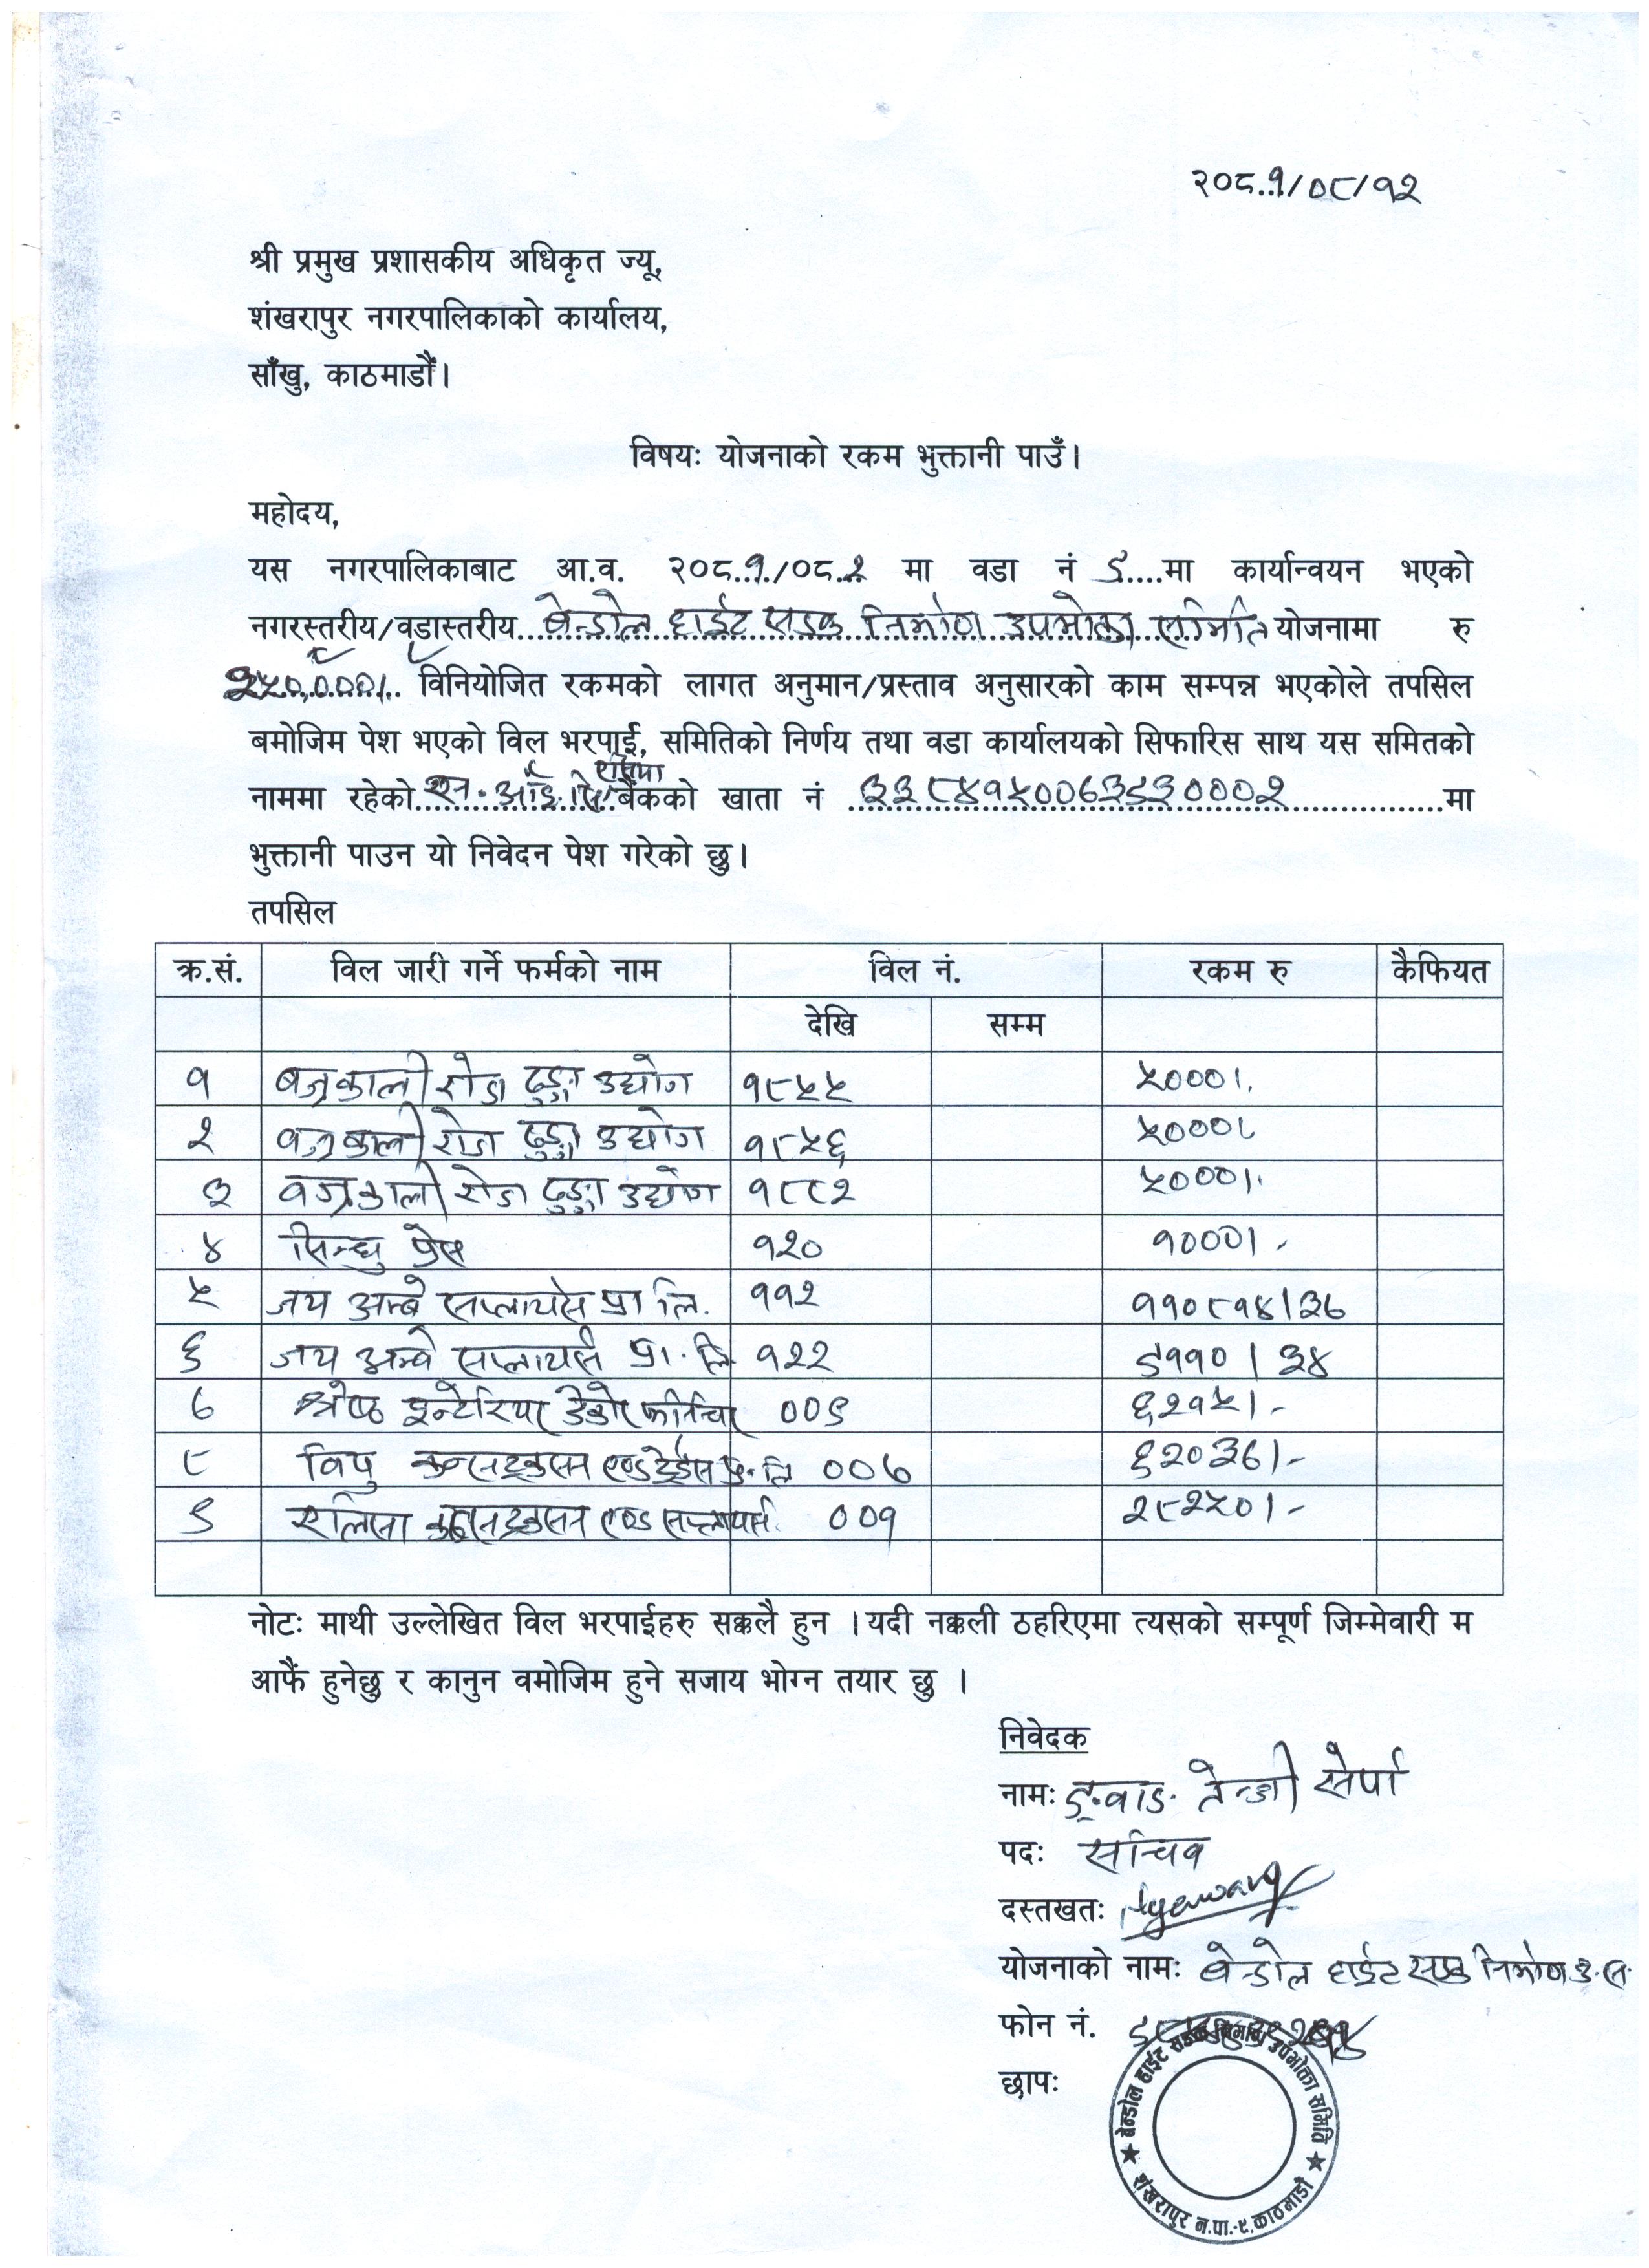 २०८१/०८/१२
श्री प्रमुख प्रशासकीय अधिकृत ज्यू,
शंखरापुर नगरपालिकाको कार्यालय,
साँखु, काठमाडौं।
विषयः योजनाको रकम भुक्तानी पाउँ।
महोदय,
यस नगरपालिकाबाट आ.व. २०८१/०८२ मा वडा नं ९....मा कार्यान्वयन भएको
नगरस्तरीय/वडास्तरीय बेन्डोल हाईट सडक निर्माण उपभोक्ता समिति योजनामा रु
२५०,०००।.. विनियोजित रकमको लागत अनुमान/प्रस्ताव अनुसारको काम सम्पन्न भएकोले तपसिल
बमोजिम पेश भएको विल भरपाई, समितिको निर्णय तथा वडा कार्यालयको सिफारिस साथ यस समितको
नाममा रहेको एन. आई. सि. एसिया बैंकको खाता नं ३३८४१५००७३९३०००२ मा
भुक्तानी पाउन यो निवेदन पेश गरेको छु।
तपसिल
क्र.सं. विल जारी गर्ने फर्मको नाम विल नं. रकम रु कैफियत
देखि सम्म
१ बज्रकाली रोडा ढुङ्गा उद्योग १८५५ ५०००।.
२ बज्रकाली रोडा ढुङ्गा उद्योग १८५६ ५०००।
३ बज्रकाली रोडा ढुङ्गा उद्योग १८८२ ५०००।.
४ सिन्धु प्रेस १२० १०००।-
५ जय अम्बे सप्लायर्स प्रा लि. ११२ ११०८१४।३७
६ जय अम्बे सप्लायर्स प्रा. लि १२२ ९११०।३४
७ श्रेष्ठ इन्टेरियर डेकोर फर्निचर ००९ ६२१५।-
८ विपु कन्सट्रक्सन एण्ड ट्रेडर्स प्रा. लि ००७ ६२०३७।-
९ एलिसा कन्सट्रक्सन एण्ड सप्लायर्स ००१ २८२५०।-
नोटः माथी उल्लेखित विल भरपाईहरु सक्कलै हुन । यदी नक्कली ठहरिएमा त्यसको सम्पूर्ण जिम्मेवारी म
आफैं हुनेछु र कानुन वमोजिम हुने सजाय भोग्न तयार छु ।
निवेदक
नामः ङवाङ तेन्जी सेर्पा
पदः सचिव
दस्तखतः
योजनाको नामः बेन्डोल हाईट सडक निर्माण उ. स.
फोन नं.
छापः
बेन्डोल हाईट सडक निर्माण उपभोक्ता समिति
शंखरापुर न.पा.-९, काठमाडौं